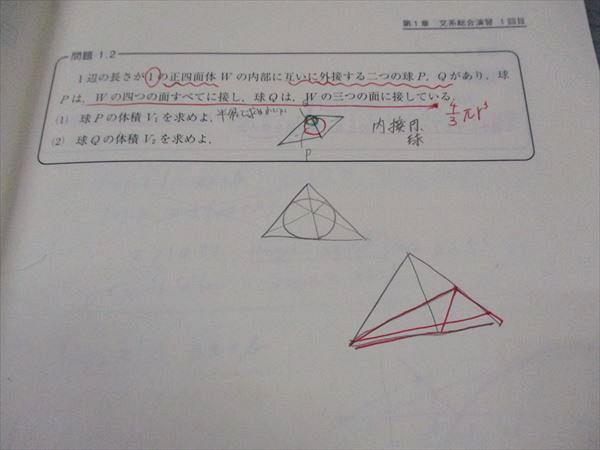 第1章 文系総合演習 1回目
問題 1.2
1辺の長さが1の正四面体Wの内部に互いに外接する二つの球P，Qがあり，球
Pは，Wの四つの面すべてに接し，球Qは，Wの三つの面に接している．
(1) 球Pの体積V₁を求めよ．
(2) 球Qの体積V₂を求めよ．
4/3 πr³
内接円
球
P